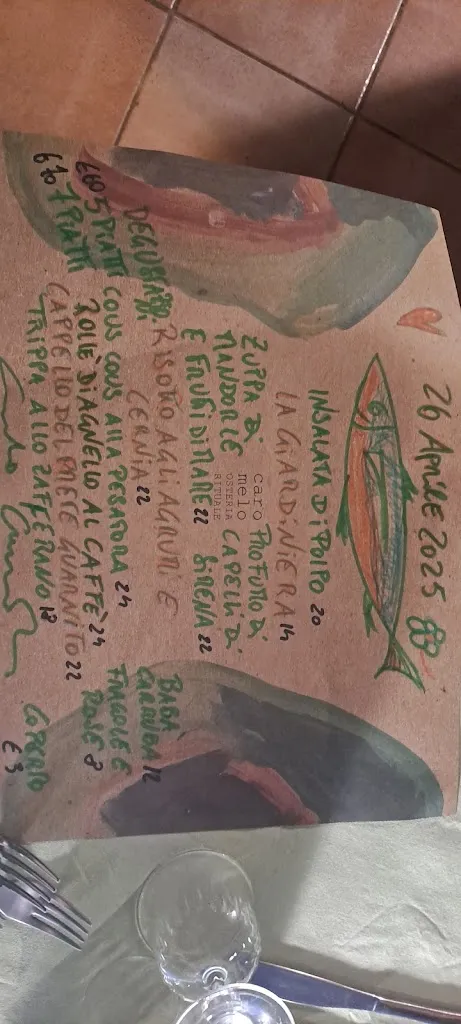 26 Aprile 2025
INSALATA DI POLPO 20
LA GIARDINIERA 14
ZUPPA DI
MANDORLE
E FRUTTI DI MARE 22
caro
melo
OSTERIA
RITUALE
PROFUMO DI
CAPELLI DI
SIRENA 22
RISOTTO AGLI AGRUMI E
CERNIA 22
COUS COUS ALLA PESATORA 24
ROLLÈ DI AGNELLO AL CAFFÈ 24
CAPPELLO DEL PRETE GUARNITO 22
TRIPPA ALLO ZAFFERANO 18
€60 5 PIATTI
€70 7 PIATTI
BABÀ
12
FRAGOLE E
8
COPERTO
€ 3